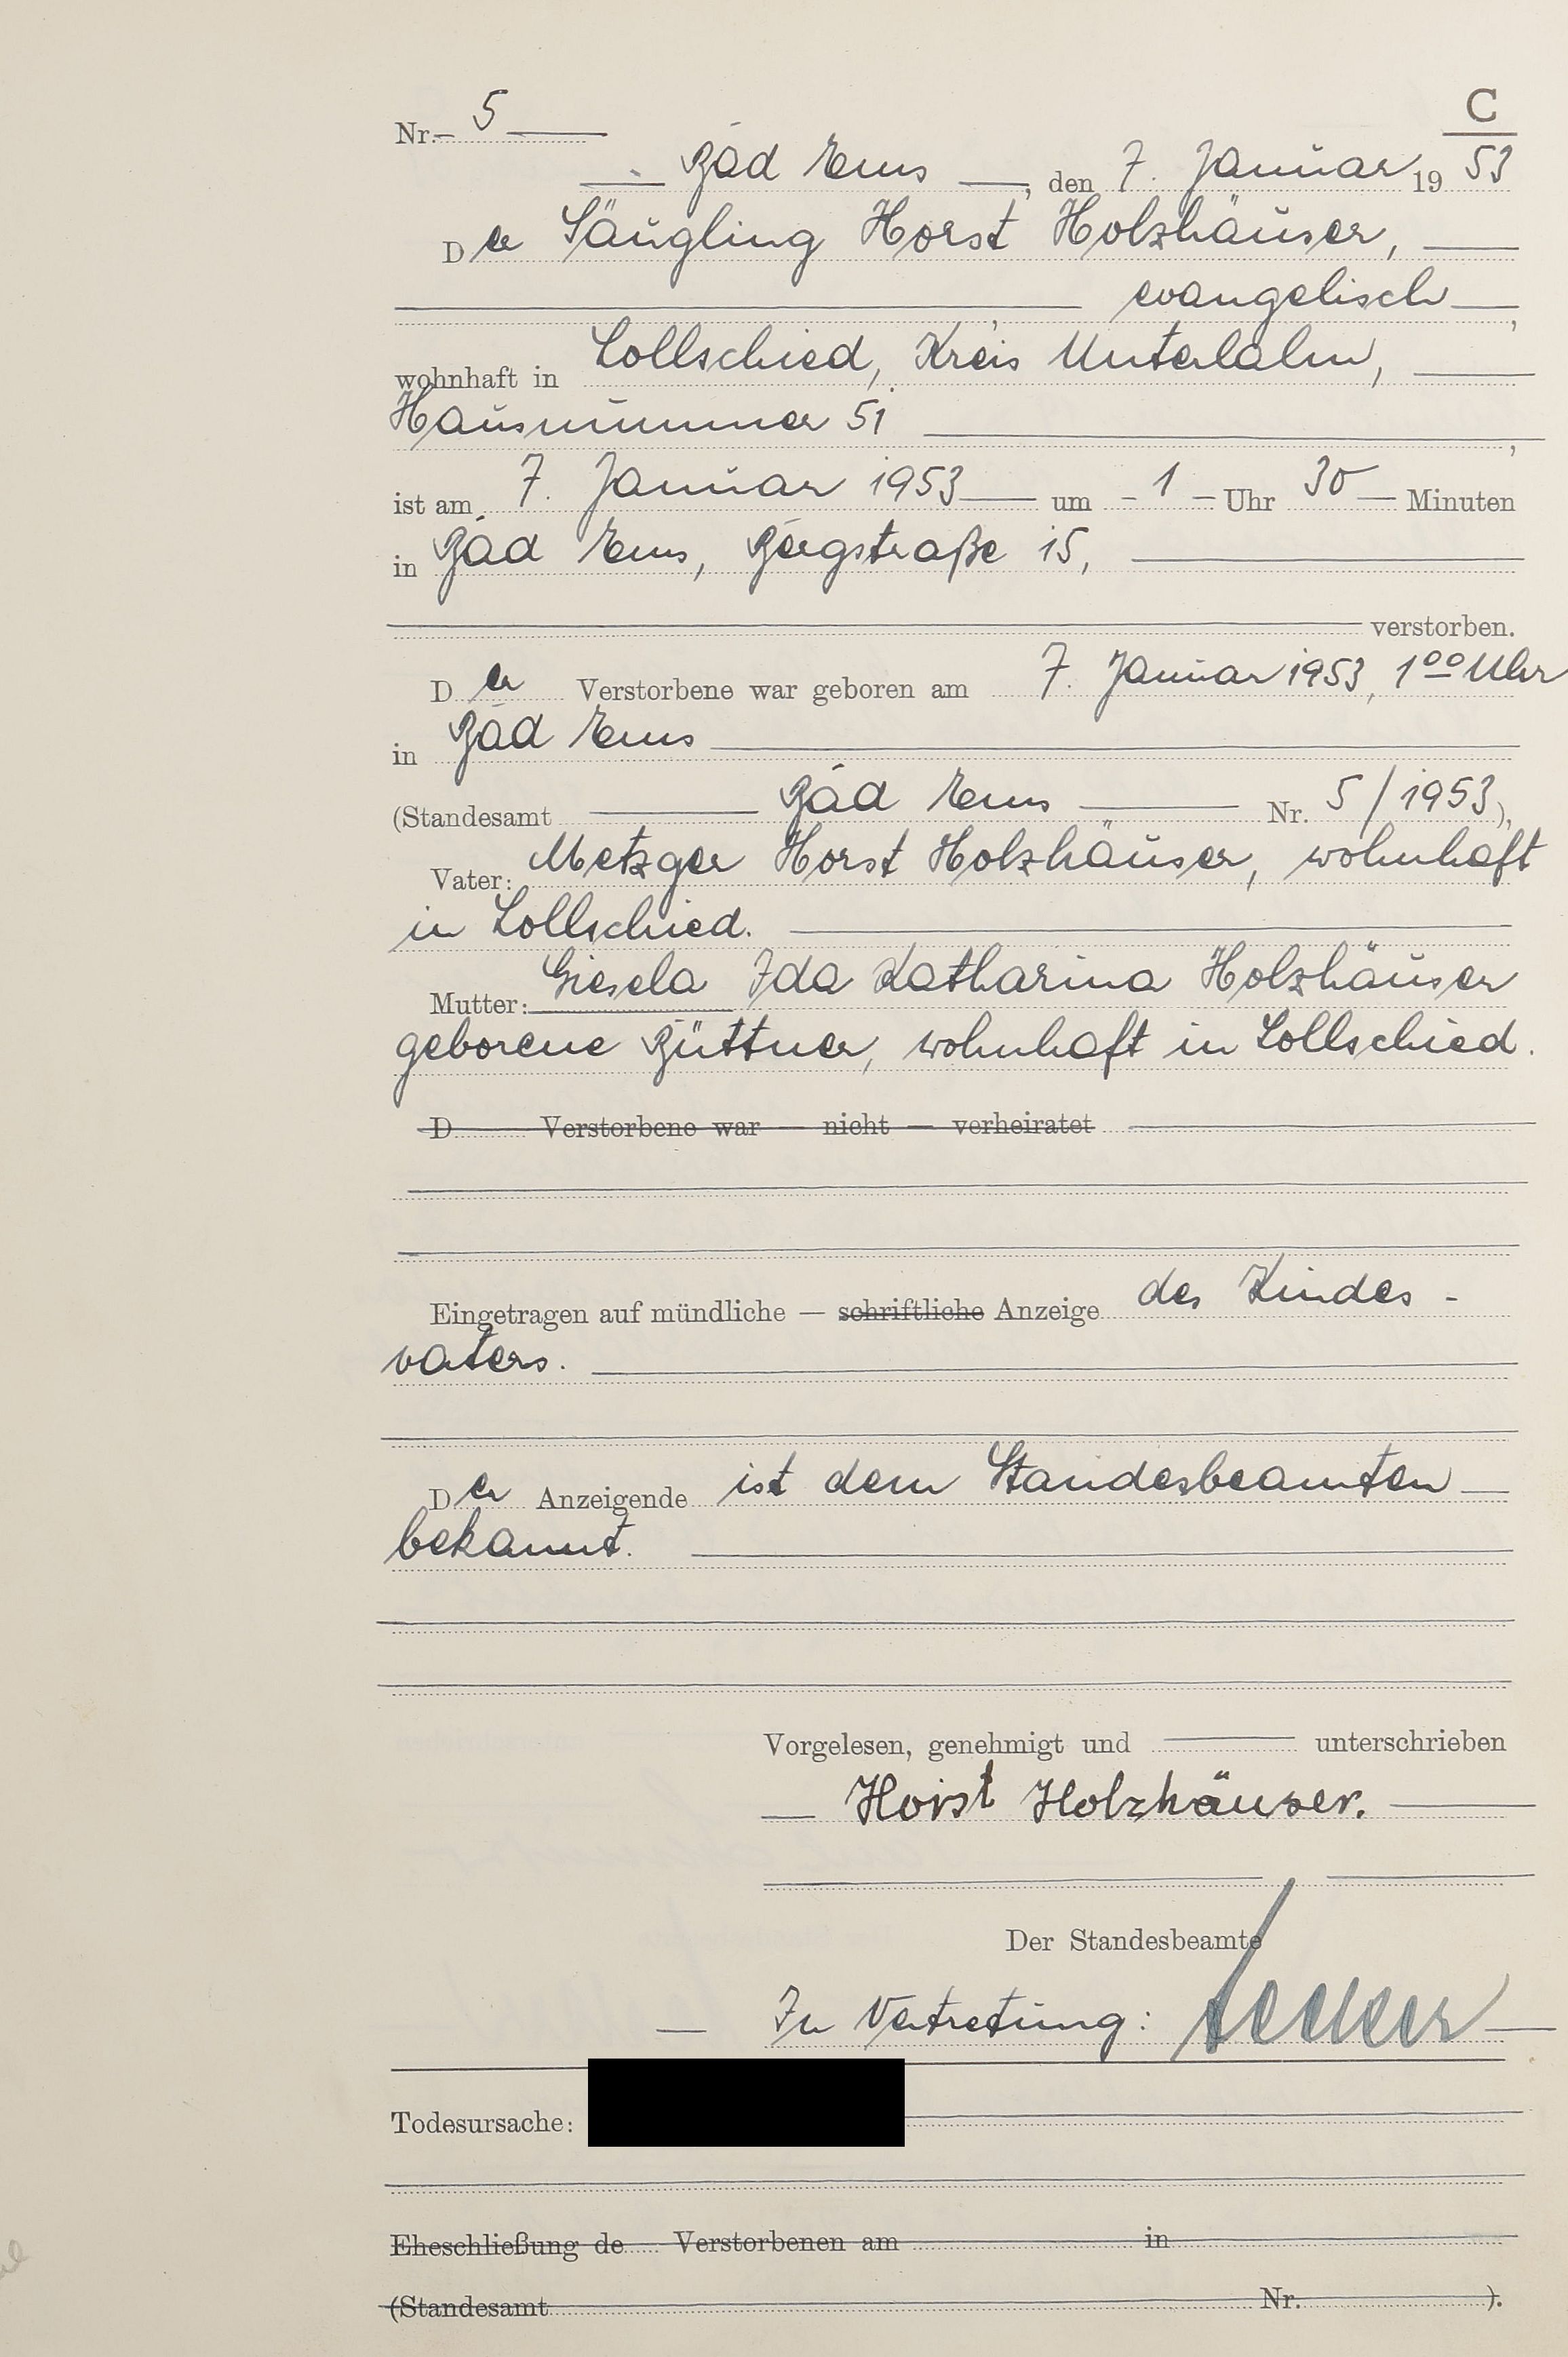 C
Nr. 5
Bad Ems, den 7. Januar 1953
Der Säugling Horst Holzhäuser,
evangelisch,
wohnhaft in Lollschied, Kreis Unterlahn,
Hausnummer 51,
ist am 7. Januar 1953 um 1 Uhr 30 Minuten
in Bad Ems, Bergstraße 15,
verstorben.
Der Verstorbene war geboren am 7. Januar 1953, 1⁰⁰ Uhr
in Bad Ems
(Standesamt Bad Ems Nr. 5/1953),
Vater: Metzger Horst Holzhäuser, wohnhaft
in Lollschied.
Mutter: Giesela Ida Katharina Holzhäuser
geborene Büttner, wohnhaft in Lollschied.
D Verstorbene war — nicht — verheiratet
Eingetragen auf mündliche — schriftliche Anzeige des Kindes-
vaters.
Der Anzeigende ist dem Standesbeamten
bekannt.
Vorgelesen, genehmigt und unterschrieben
Horst Holzhäuser.
Der Standesbeamte
In Vertretung:
Todesursache:
Eheschließung de Verstorbenen am in
(Standesamt Nr. ).